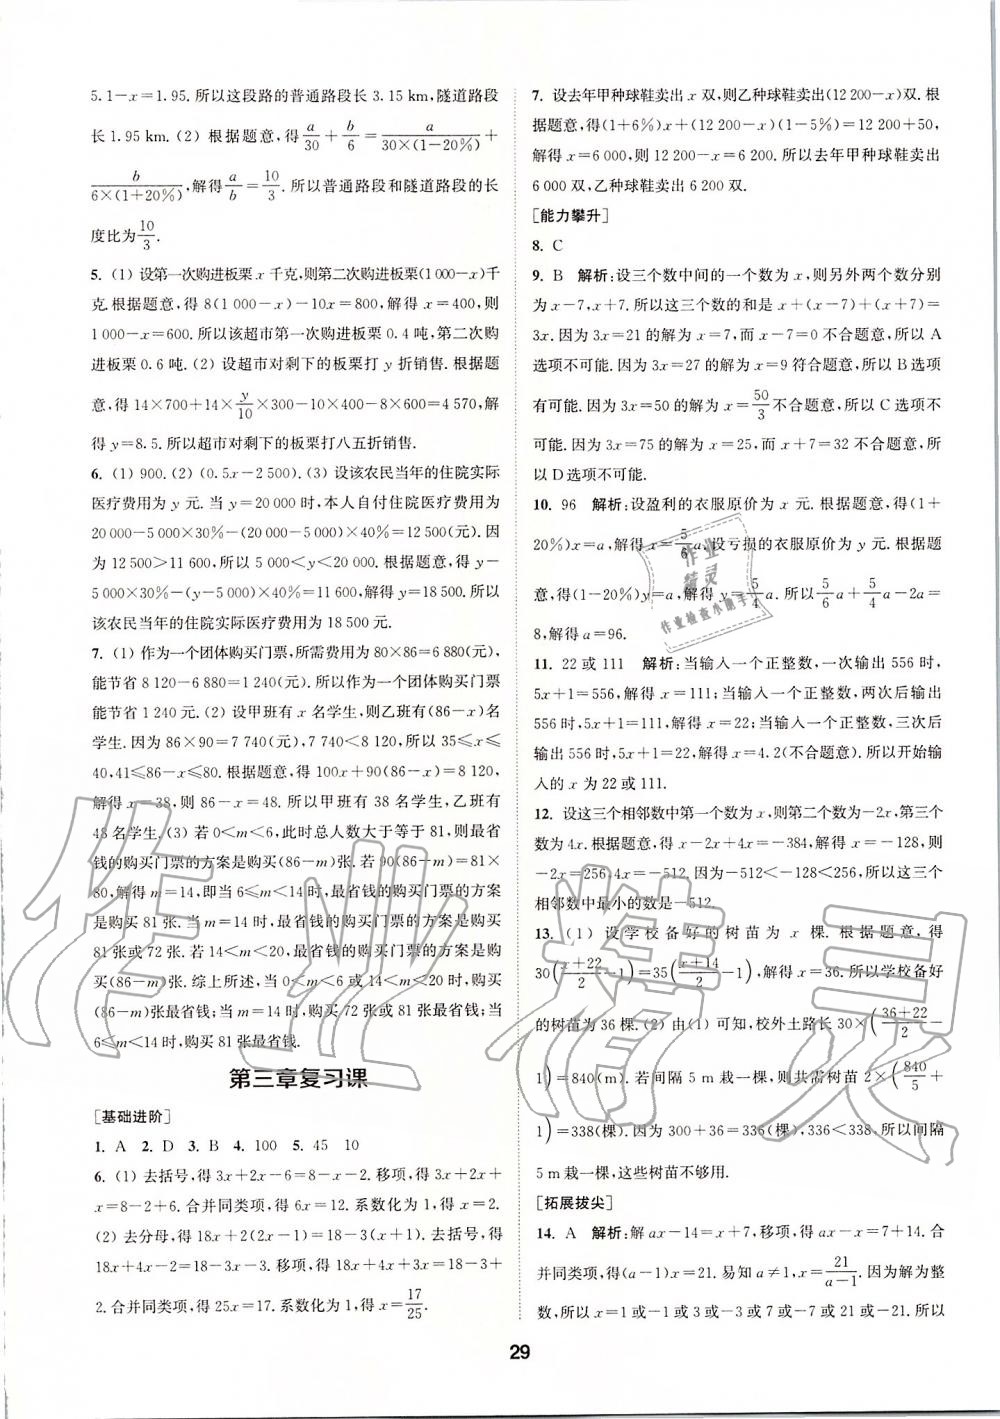 5.1－x＝1.95. 所以这段路的普通路段长 3.15 km,隧道路段
长 1.95 km. (2) 根据题意,得 a/30 ＋ b/6 ＝ a/(30×(1－20%)) ＋
b/(6×(1＋20%)),解得 a/b ＝ 10/3. 所以普通路段和隧道路段的长
度比为 10/3.
5. (1) 设第一次购进板栗 x 千克,则第二次购进板栗(1 000－x)千
克.根据题意,得 8(1 000－x)－10x＝800,解得 x＝400,则
1 000－x＝600. 所以该超市第一次购进板栗 0.4 吨,第二次购
进板栗 0.6 吨. (2) 设超市对剩下的板栗打 y 折销售. 根据题
意,得 14×700＋14× y/10 ×300－10×400－8×600＝4 570,解
得 y＝8.5. 所以超市对剩下的板栗打八五折销售.
6. (1) 900. (2) (0.5x－2 500). (3) 设该农民当年的住院实际
医疗费用为 y 元. 当 y＝20 000 时,本人自付住院医疗费用为
20 000－5 000×30%－(20 000－5 000)×40%＝12 500(元). 因
为 12 500＞11 600,所以 5 000＜y＜20 000. 根据题意,得 y－
5 000×30%－(y－5 000)×40%＝11 600,解得 y＝18 500. 所以
该农民当年的住院实际医疗费用为 18 500 元.
7. (1) 作为一个团体购买门票,所需费用为 80×86＝6 880(元),
能节省 8 120－6 880＝1 240(元). 所以作为一个团体购买门票
能节省 1 240 元. (2) 设甲班有 x 名学生,则乙班有(86－x)名
学生. 因为 86×90＝7 740(元),7 740＜8 120,所以 35≤x≤
40,41≤86－x≤80. 根据题意,得 100x＋90(86－x)＝8 120,
解得 x＝38,则 86－x＝48. 所以甲班有 38 名学生,乙班有
48 名学生. (3) 若 0＜m＜6,此时总人数大于等于 81,则最省
钱的购买门票的方案是购买(86－m)张. 若 90(86－m)＝81×
80,解得 m＝14,即当 6≤m＜14 时,最省钱的购买门票的方案
是购买 81 张. 当 m＝14 时,最省钱的购买门票的方案是购买
81 张或 72 张. 若 14＜m＜20,最省钱的购买门票的方案是购买
(86－m)张. 综上所述,当 0＜m＜6 或 14＜m＜20 时,购买
(86－m)张最省钱;当 m＝14 时,购买 72 张或 81 张最省钱;当
6≤m＜14 时,购买 81 张最省钱.
第三章复习课
[基础进阶]
1. A 2. D 3. B 4. 100 5. 45 10
6. (1) 去括号,得 3x＋2x－6＝8－x－2. 移项,得 3x＋2x＋
x＝8－2＋6. 合并同类项,得 6x＝12. 系数化为 1,得 x＝2.
(2) 去分母,得 18x＋2(2x－1)＝18－3(x＋1). 去括号,得
18x＋4x－2＝18－3x－3. 移项,得 18x＋4x＋3x＝18－3＋
2. 合并同类项,得 25x＝17. 系数化为 1,得 x＝ 17/25.
7. 设去年甲种球鞋卖出 x 双,则乙种球鞋卖出(12 200－x)双. 根
据题意,得(1＋6%)x＋(12 200－x)(1－5%)＝12 200＋50,
解得 x＝6 000,则 12 200－x＝6 200. 所以去年甲种球鞋卖出
6 000 双,乙种球鞋卖出 6 200 双.
[能力攀升]
8. C
9. B 解析:设三个数中间的一个数为 x,则另外两个数分别
为 x－7,x＋7. 所以这三个数的和是 x＋(x－7)＋(x＋7)＝
3x. 因为 3x＝21 的解为 x＝7,而 x－7＝0 不合题意,所以 A
选项不可能. 因为 3x＝27 的解为 x＝9 符合题意,所以 B 选项
有可能. 因为 3x＝50 的解为 x＝ 50/3 不合题意,所以 C 选项不
可能. 因为 3x＝75 的解为 x＝25,而 x＋7＝32 不合题意,所
以 D 选项不可能.
10. 96 解析:设盈利的衣服原价为 x 元. 根据题意,得(1＋
20%)x＝a,解得 x＝ 5/6 a,设亏损的衣服原价为 y 元. 根据题
意,得(1－20%)y＝a,解得 y＝ 5/4 a. 所以 5/6 a＋ 5/4 a－2a＝
8,解得 a＝96.
11. 22 或 111 解析:当输入一个正整数,一次输出 556 时,
5x＋1＝556,解得 x＝111;当输入一个正整数,两次后输出
556 时,5x＋1＝111,解得 x＝22;当输入一个正整数,三次后
输出 556 时,5x＋1＝22,解得 x＝4.2(不合题意). 所以开始输
入的 x 为 22 或 111.
12. 设这三个相邻数中第一个数为 x,则第二个数为－2x,第三个
数为 4x. 根据题意,得 x－2x＋4x＝－384,解得 x＝－128,则
－2x＝256,4x＝－512. 因为－512＜－128＜256,所以这三个
相邻数中最小的数是－512.
13. (1) 设学校备好的树苗为 x 棵. 根据题意,得
30( (x＋22)/2 －1)＝35( (x＋14)/2 －1),解得 x＝36. 所以学校备好
的树苗为 36 棵. (2) 由(1) 可知,校外土路长 30×( (36＋22)/2 －
1)＝840(m). 若间隔 5 m 栽一棵树,则共需树苗 2×( 840/5 ＋
1)＝338(棵). 因为 300＋36＝336(棵),336＜338. 所以间隔
5 m 栽一棵,这些树苗不够用.
[拓展拔尖]
14. A 解析:解 ax－14＝x＋7,移项,得 ax－x＝7＋14. 合
并同类项,得(a－1)x＝21. 易知 a≠1,x＝ 21/(a－1). 因为解为整
数,所以 x＝1 或－1 或 3 或－3 或 7 或－7 或 21 或－21. 所以
29
作业精灵
作业
精灵
作业检查小助手